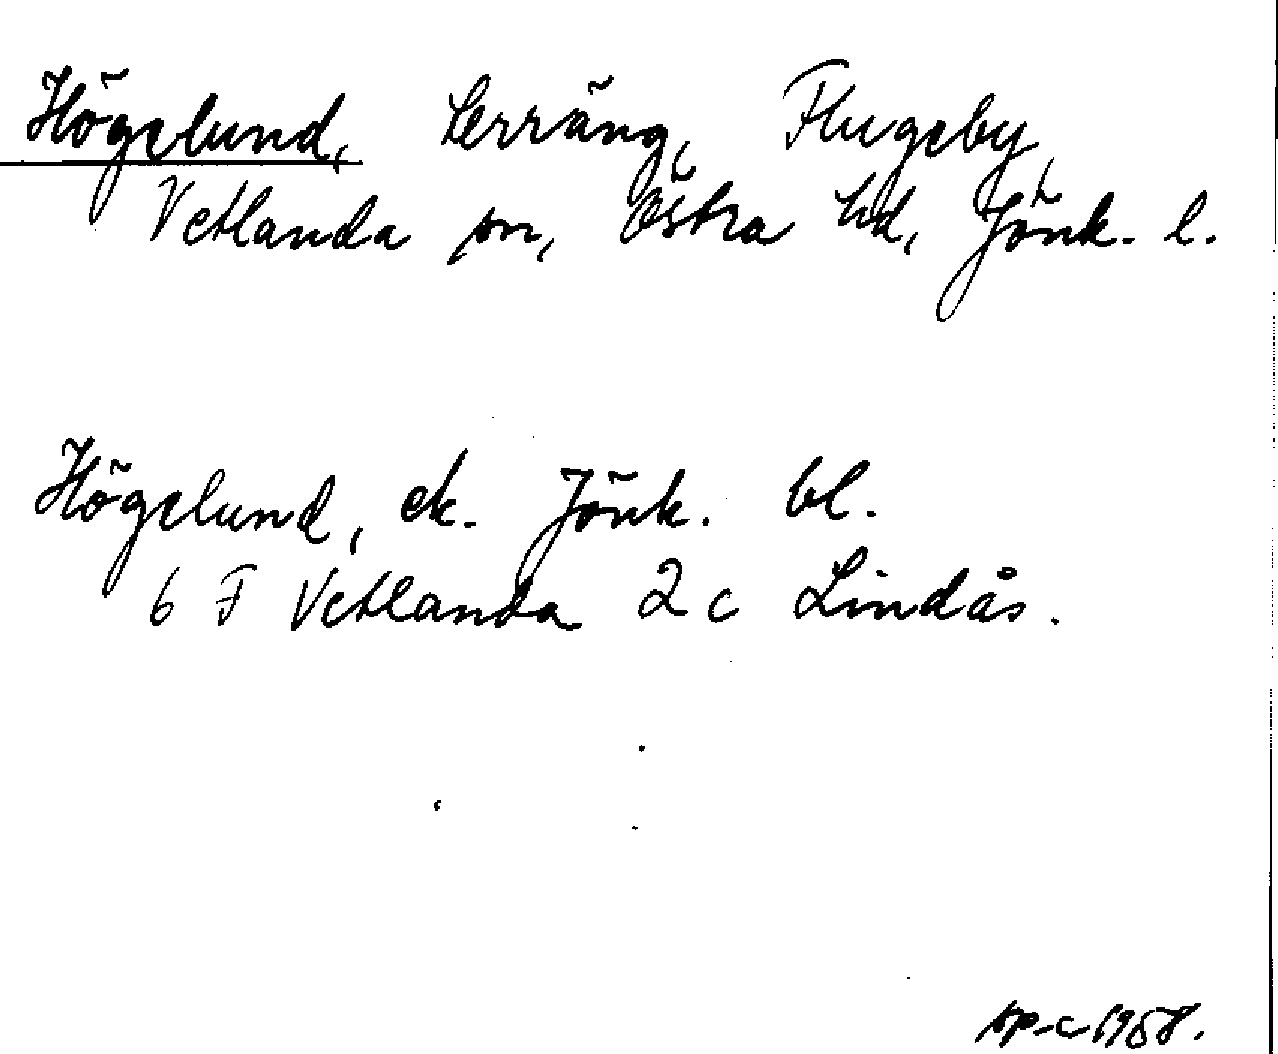 Högelund, Lerräng, Flugeby,
Vetlanda sn, Östra hd, Jönk. l.
Högelund, ek. Jönk. bl.
6 F Vetlanda 2 c Lindås.
1958.